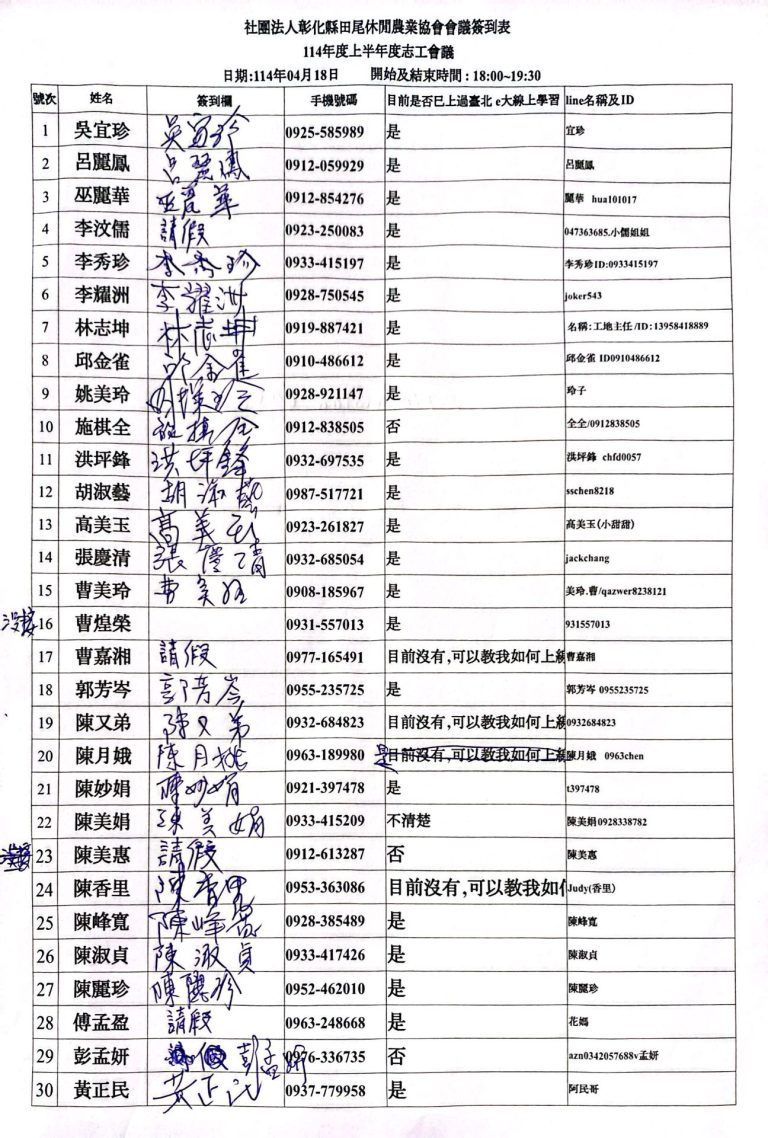 社團法人彰化縣田尾休閒農業協會會議簽到表
114年度上半年度志工會議
日期:114年04月18日 開始及結束時間:18:00~19:30
號次 姓名 簽到欄 手機號碼 目前是否已上過臺北 e大線上學習 line名稱及ID
1 吳宜珍 吳宜珍 0925-585989 是 宜珍
2 呂麗鳳 呂麗鳳 0912-059929 是 呂麗鳳
3 巫麗華 巫麗華 0912-854276 是 麗華 hua101017
4 李汶儒 請假 0923-250083 是 047363685.小儒姐姐
5 李秀珍 李秀珍 0933-415197 是 李秀珍ID:0933415197
6 李耀洲 李耀洲 0928-750545 是 joker543
7 林志坤 林志坤 0919-887421 是 名稱:工地主任/ID:13958418889
8 邱金雀 邱金雀 0910-486612 是 邱金雀 ID0910486612
9 姚美玲 0928-921147 是 玲子
10 施棋全 施棋全 0912-838505 否 全全/0912838505
11 洪坪鋒 洪坪鋒 0932-697535 是 洪坪鋒 chfd0057
12 胡淑藝 胡淑藝 0987-517721 是 sschen8218
13 高美玉 高美玉 0923-261827 是 高美玉(小甜甜)
14 張慶清 張慶清 0932-685054 是 jackchang
15 曹美玲 曹美玲 0908-185967 是 美玲.曹/qazwer8238121
沒接 16 曹煌榮 0931-557013 是 931557013
17 曹嘉湘 請假 0977-165491 目前沒有,可以教我如何上 曹嘉湘
18 郭芳岑 郭芳岑 0955-235725 是 郭芳岑 0955235725
19 陳又弟 陳又弟 0932-684823 目前沒有,可以教我如何上 0932684823
20 陳月娥 陳月娥 0963-189980 是 目前沒有,可以教我如何上 陳月娥 0963chen
21 陳妙娟 陳妙娟 0921-397478 是 t397478
22 陳美娟 陳美娟 0933-415209 不清楚 陳美娟0928338782
23 陳美惠 請假 0912-613287 否 陳美惠
24 陳香里 陳香里 0953-363086 目前沒有,可以教我如 Judy(香里)
25 陳峰寬 陳峰寬 0928-385489 是 陳峰寬
26 陳淑貞 陳淑貞 0933-417426 是 陳淑貞
27 陳麗珍 陳麗珍 0952-462010 是 陳麗珍
28 傅孟盈 請假 0963-248668 是 花媽
29 彭孟妍 彭孟妍 0976-336735 否 azn0342057688v孟妍
30 黃正民 黃正民 0937-779958 是 阿民哥